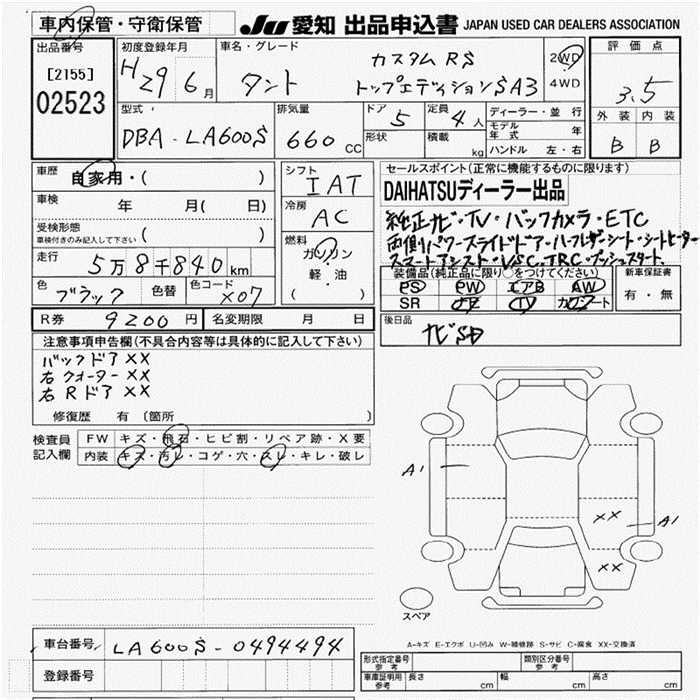 車内保管・守衛保管
JU 愛知 出品申込書 JAPAN USED CAR DEALERS ASSOCIATION
出品番号
[2155]
02523
初度登録年月
H29 6月
車名・グレード
タント
カスタムRS
トップエディションSA3
2WD
4WD
評価点
3.5
外装 内装
B B
型式
DBA - LA600S
排気量
660 CC
ドア
5
形状
定員
4人
積載
kg
ディーラー・並行
モデル年式 年
ハンドル 左・右
車歴
自家用・( )
車検
年 月( 日)
受検形態
車検付きのみ記入して下さい ( )
走行
5万8千840km
色
ブラック
色替
色コード
X07
シフト
IAT
冷房
AC
燃料
ガソリン
軽・油
( )
セールスポイント(正常に機能するものに限ります)
DAIHATSUディーラー出品
純正ナビ・TV・バックカメラ・ETC
両側パワースライドドア・ハーフレザーシート・シートヒーター
スマートアシスト・VSC.TRC・プッシュスタート.
装備品(純正品に限り○をつけてください)
PS PW エアB AW
SR ナビ TV カワシート
新車保証書
有・無
R券 9200円
名変期限 月 日
後日品
ナビSD
注意事項申告欄(不具合内容等は具体的に記入して下さい)
バックドア XX
右クォーター XX
右Rドア XX
修復歴 有 〔箇所 〕
検査員記入欄
FW キズ・飛石・ヒビ割・リペア跡・X要
内装 キズ・汚レ・コゲ・穴・スレ・キレ・破レ
A1
XX
A1
XX
スペア
A-キズ E-エクボ U-凹み W-補修跡 S-サビ C-腐食 XX-交換済
車台番号 LA600S-0494494
登録番号
形式指定番号 参考
類別区分番号 参考
車庫証明用 参考
長さ cm
幅 cm
高さ cm